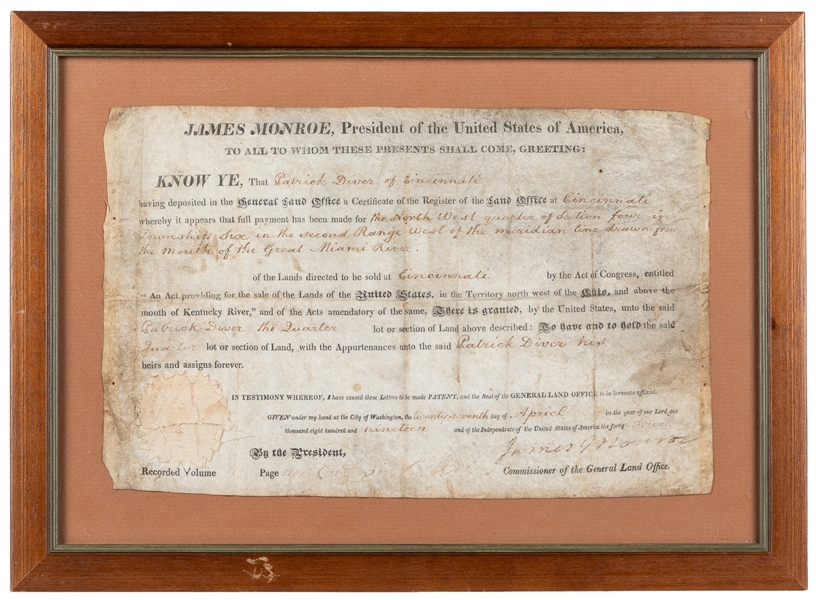 JAMES MONROE, President of the United States of America,
TO ALL TO WHOM THESE PRESENTS SHALL COME, GREETING:
KNOW YE, That Patrick Diver of Cincinnati
having deposited in the General Land Office a Certificate of the Register of the Land Office at Cincinnati
whereby it appears that full payment has been made for the North West quarter of Section four in
Township Six in the second Range West of the meridian line drawn from
the Mouth of the Great Miami River.
of the Lands directed to be sold at Cincinnati by the Act of Congress, entitled
"An Act providing for the sale of the Lands of the United States, in the Territory north west of the Ohio, and above the
mouth of Kentucky River," and of the Acts amendatory of the same, There is granted, by the United States, unto the said
Patrick Diver the Quarter lot or section of Land above described: To have and to hold the said
Quarter lot or section of Land, with the Appurtenances unto the said Patrick Diver his
heirs and assigns forever.
IN TESTIMONY WHEREOF, I have caused these Letters to be made PATENT, and the Seal of the GENERAL LAND OFFICE to be hereunto affixed.
GIVEN under my hand at the City of Washington, the twenty seventh day of April in the year of our Lord one
thousand eight hundred and nineteen and of the Independence of the United States of America the forty three
By the President, James Monroe
Recorded Volume Page Commissioner of the General Land Office.